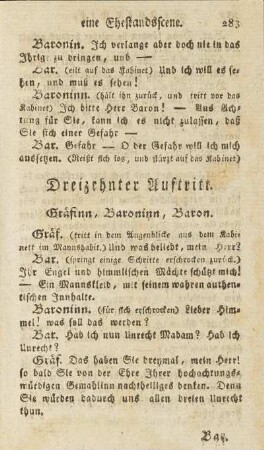 eine Ehestandsscene. 283
Baronin. Ich verlange aber doch nie in das
Ihrige zu dringen, und —
Bar. (eilt auf das Kabinet) Und ich will es se-
hen, und muß es sehen!
Baroninn. (hält ihn zurück, und tritt vor das
Kabinet) Ich bitte Herr Baron! — Aus Ach-
tung für Sie, kann ich es nicht zulassen, daß
Sie sich einer Gefahr —
Bar. Gefahr — O der Gefahr will ich mich
aussetzen. (Reißt sich los, und stürzt auf das Kabinet)
Dreizehnter Auftritt.
Gräfinn, Baroninn, Baron.
Gräf. (tritt in dem Augenblicke aus dem Kabi
nett im Mannshabit.) Und was beliebt, mein Herr?
Bar. (springt einige Schritte erschrocken zurück.)
Ihr Engel und himmlischen Mächte schützt mich!
— Ein Mannskleid, mit seinem wahren authen-
tischen Innhalte.
Baroninn. (für sich erschrocken) Lieber Him-
mel! was soll das werden?
Bar. Hab ich nun Unrecht Madam? Hab ich
Unrecht?
Gräf. Das haben Sie dreymal, mein Herr!
so bald Sie von der Ehre Ihrer hochachtungs-
würdigen Gemahlinn nachtheiliges denken. Denn
Sie würden dadurch uns allen dreien Unrecht
thun.
Bar.